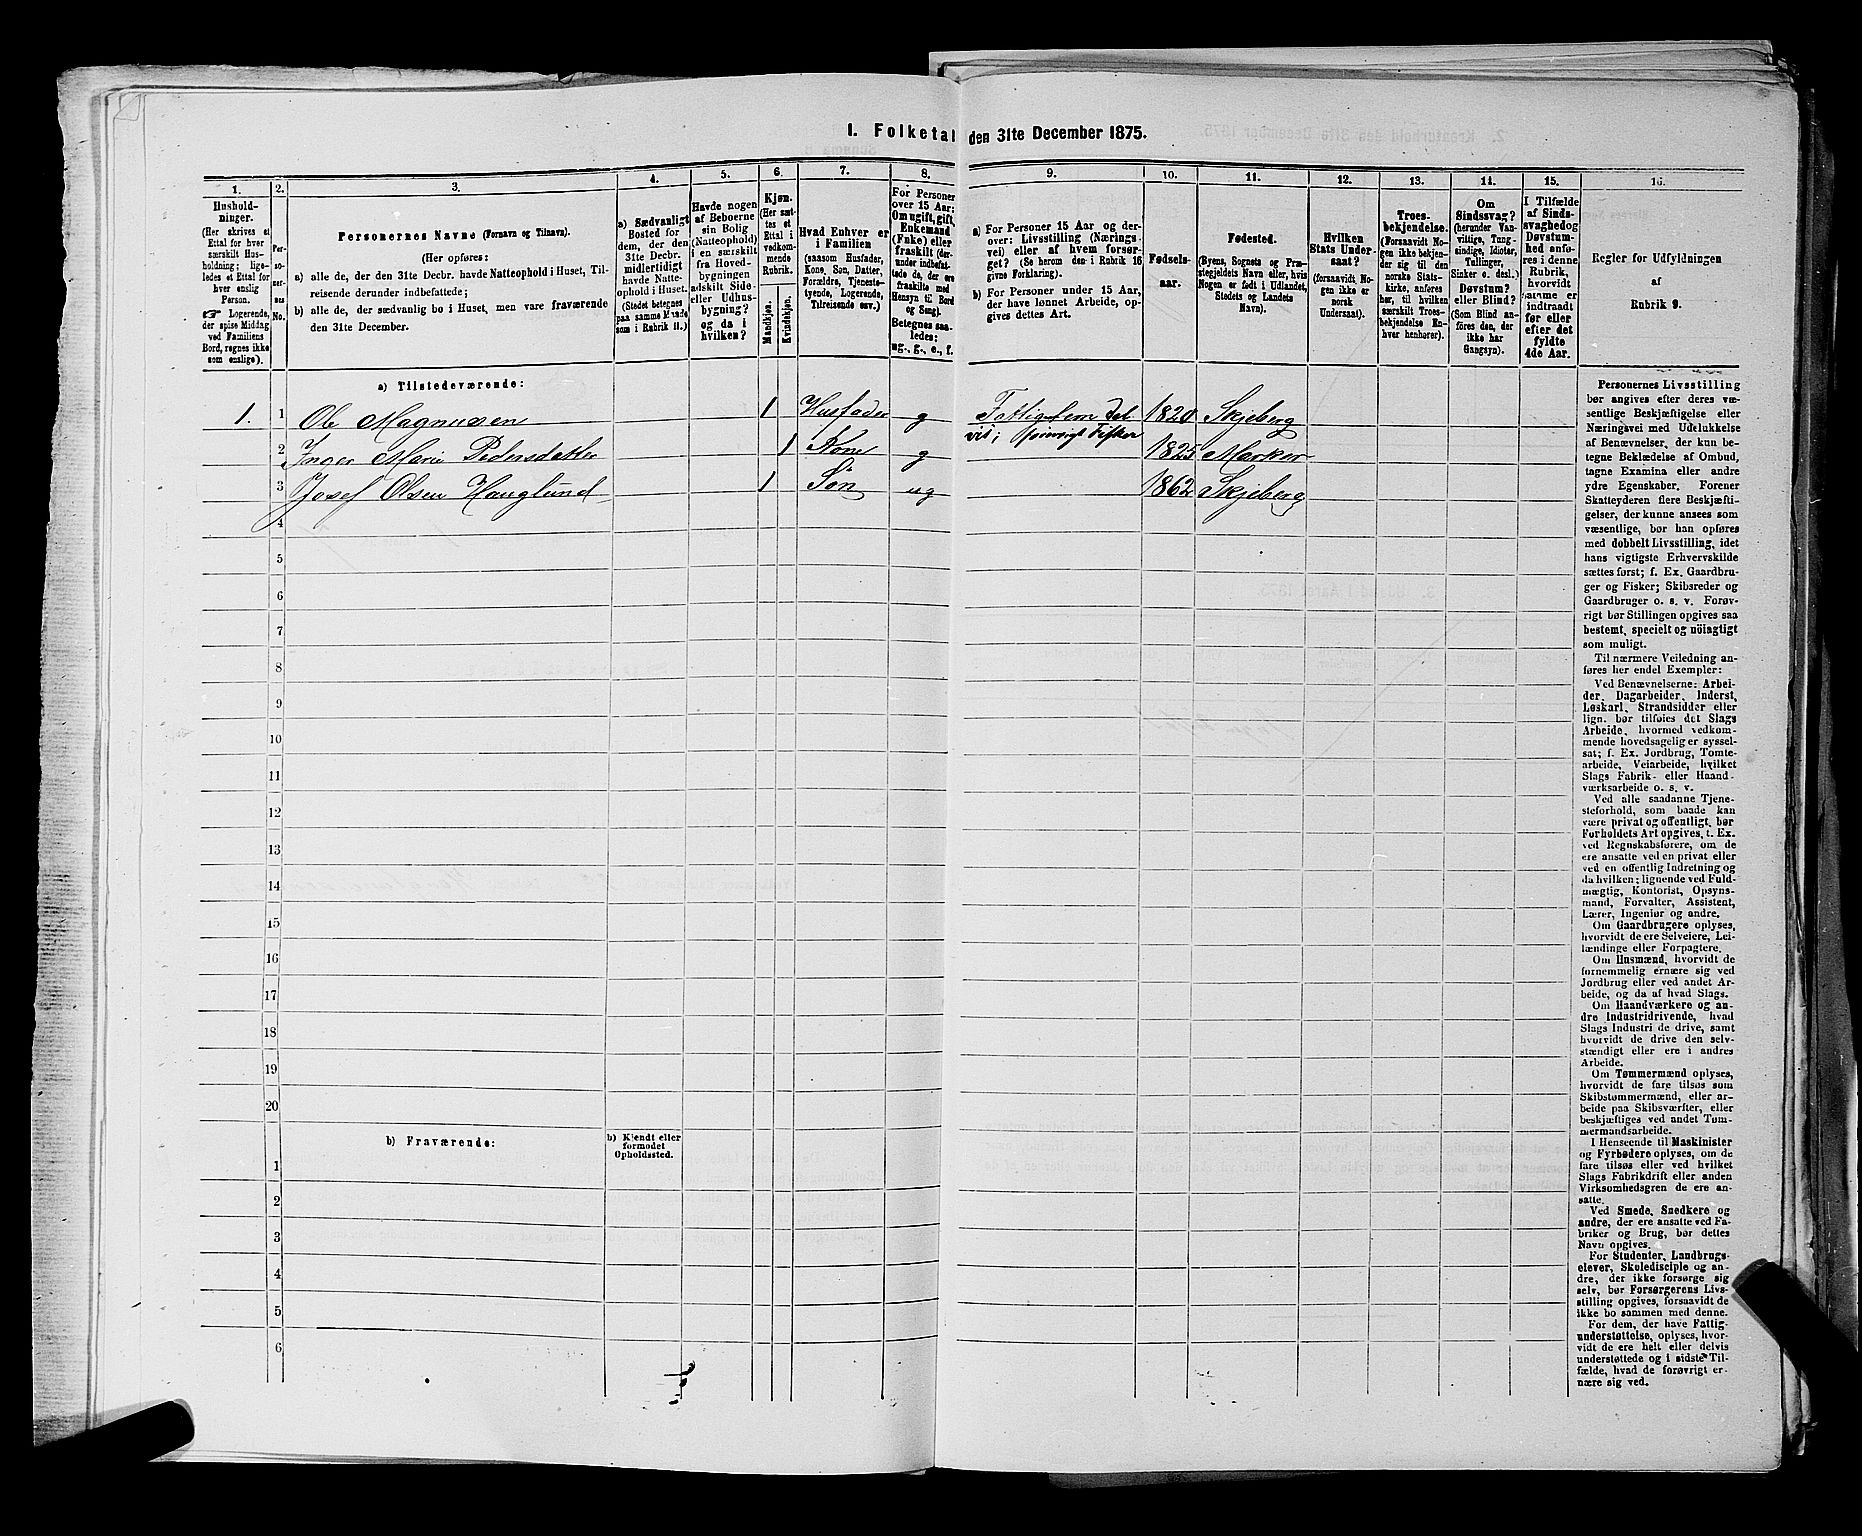 I. Folketal den 31te December 1875.
1. 2. 3. 4. 5. 6. 7. 8. 9. 10. 11. 12. 13. 14. 15. 16.
Hushold-
ninger.
(Her skrives et
Ettal for hver
særskilt Hus-
holdning; lige-
ledes et Ettal for
hver enslig
Person.
☞ Logerende,
der spise Middag
ved Familiens
Bord, regnes ikke
som enslige).
Per-
so-
ner-
nes
No.
Personernes Navne (Fornavn og Tilnavn).
(Her opføres:
a) alle de, der den 31te Decbr. havde Natteophold i Huset, Til-
reisende derunder indbefattede;
b) alle de, der sædvanlig bo i Huset, men vare fraværende
den 31te December.
a) Sædvanligt
Bosted for
dem, der den
31te Decbr.
midlertidigt
havde Natte-
ophold i Huset.
(Stedet betegnes
paa samme Maade
som i Rubrik 11.)
Havde nogen
af Beboerne
sin Bolig
(Natteophold)
i en særskilt
fra Hoved-
bygningen
adskilt Side-
eller Udhus-
bygning?
og da i
hvilken?
Kjøn.
(Her sæt-
tes et
Ettal i
vedkom-
mende
Rubrik.
Mandkjøn.
Kvindekjøn.
Hvad Enhver er
i Familien
(saasom Husfader,
Kone, Søn, Datter,
Forældre, Tjeneste-
tyende, Logerende,
Tilreisende osv.)
For Personer
over 15 Aar;
Om ugift, gift,
Enkemand
(Enke) eller
fraskilt (der-
under indbefat-
tede de, der ere
fraskilte med
Hensyn til Bord
og Seng).
Betegnes saa-
ledes:
ug., g., e., f.
a) For Personer 15 Aar og der-
over: Livsstilling (Nærings-
vei) eller af hvem forsør-
get? (Se herom den i Rubrik 16
givne Forklaring).
b) For Personer under 15 Aar,
der have lønnet Arbeide, op-
gives dettes Art.
Fødsels-
aar.
Fødested.
(Byens, Sognets og Præ-
stegjeldets Navn eller, hvis
Nogen er født i Udlandet,
Stedets og Landets
Navn).
Hvilken
Stats Under-
saat?
(forsaavidt No-
gen ikke er
norsk
Undersaat).
Troes-
bekjendelse.
(Forsaavidt No-
gen ikke bekjen-
der sig til den
norske Stats-
kirke, anføres
her, til hvilken
særskilt Troes-
bekjendelse En-
hver henhører).
Om
Sindssvag?
(herunder Van-
vittige, Tung-
sindige, Idioter,
Tullinger,
Sinker o. desl.)
Døvstum?
eller Blind?
(Som Blind an-
føres den, der
ikke har
Gangsyn).
I Tilfælde
af Sinds-
svaghed og
Døvstum-
hed anfø-
res i denne
Rubrik,
hvorvidt
samme er
indtraadt
før eller
efter det
fyldte
4de Aar.
Regler for Udfyldningen
af
Rubrik 9.
a) Tilstedeværende:
1. 1 Ole Magnussen 1 Husfader g 1820 Skjeberg
2 Inger Marie Pedersdatter 1 Kone g 1825 Marker
3 Josef Olsen Hauglund 1 Søn ug 1862 Skjeberg
4
5
6
7
8
9
10
11
12
13
14
15
16
17
18
19
20
b) Fraværende:
b) Kjendt eller
formodet
Opholdssted.
1
2
3
4
5
6
Personernes Livsstilling
bør angives efter deres væ-
sentlige Beskjæftigelse eller
Næringsvei med Udelukkelse
af Benævnelser, der kun be-
tegne Beklædelse af Ombud,
tagne Examina eller andre
ydre Egenskaber. Forener
Skatteyderen flere Beskjæfti-
gelser, der kunne ansees som
væsentlige, bør han opføres
med dobbelt Livsstilling, idet
hans vigtigste Erhvervskilde
sættes først; f. Ex. Gaardbru-
ger og Fisker; Skibsreder og
Gaardbruger o. s. v. Forøv-
rigt bør Stillingen opgives saa
bestemt, specielt og nöiagtigt
som muligt.
Til nærmere Veiledning an-
føres her endel Exempler:
Ved Benævnelserne: Arbei-
der, Dagarbeider, Inderst,
Løskarl, Strandsidder eller
lign. bør tilføies det Slags
Arbeide, hvormed vedkom-
mende hovedsagelig er syssel-
sat; f. Ex. Jordbrug, Tomte-
arbeide, Veiarbeide, hvilket
Slags Fabrik- eller Haand-
værksarbeide o. s. v.
Ved alle saadanne Tjene-
steforhold, som baade kan
være privat og offentligt, bør
Forholdets Art opgives, t. Ex.
ved Regnskabsførere, om de
ere ansatte ved en privat eller
ved en offentlig Indretning og
da hvilken; lignende ved Fuld-
mægtig, Kontorist, Opsyns-
mand, Forvalter, Assistent,
Lærer, Ingeniør og andre.
Om Gaardbrugere oplyses,
hvorvidt de ere Selveiere, Lei-
lændinge eller Forpagtere.
Om Husmænd, hvorvidt de
fornemmelig ernære sig ved
Jordbrug eller ved andet Ar-
beide, og da af hvad Slags.
Om Haandværkere og an-
dre Industridrivende, hvad
Slags Industri de drive, samt
hvorvidt de drive den selv-
stændigt eller ere i andres
Arbeide.
Om Tømmermænd oplyses,
hvorvidt de fare tilsøs som
Skibstømmermænd, eller ar-
beide paa Skibsværfter, eller
beskjæftiges ved andet Tøm-
mermandsarbeide.
I Henseende til Maskinister
og Fyrbødere oplyses, om de
fare tilsøs eller ved hvilket
Slags Fabrikdrift eller anden
Virksomhedsgren de ere an-
satte.
Ved Smede, Snedkere og
andre, der ere ansatte ved Fa-
briker og Brug, bør dettes
Navn opgives.
For Studenter, Landbrugs-
elever, Skoledisciple og an-
dre, der ikke forsørge sig
selv, bør Forsørgerens Livs-
stilling opgives, forsaavidt de
ikke bo sammen med denne.
For dem, der have Fattig-
understøttelse, oplyses, hvor-
vidt de ere helt eller delvis
understøttede og i sidste Til-
fælde, hvad de forøvrigt er-
nære sig ved.